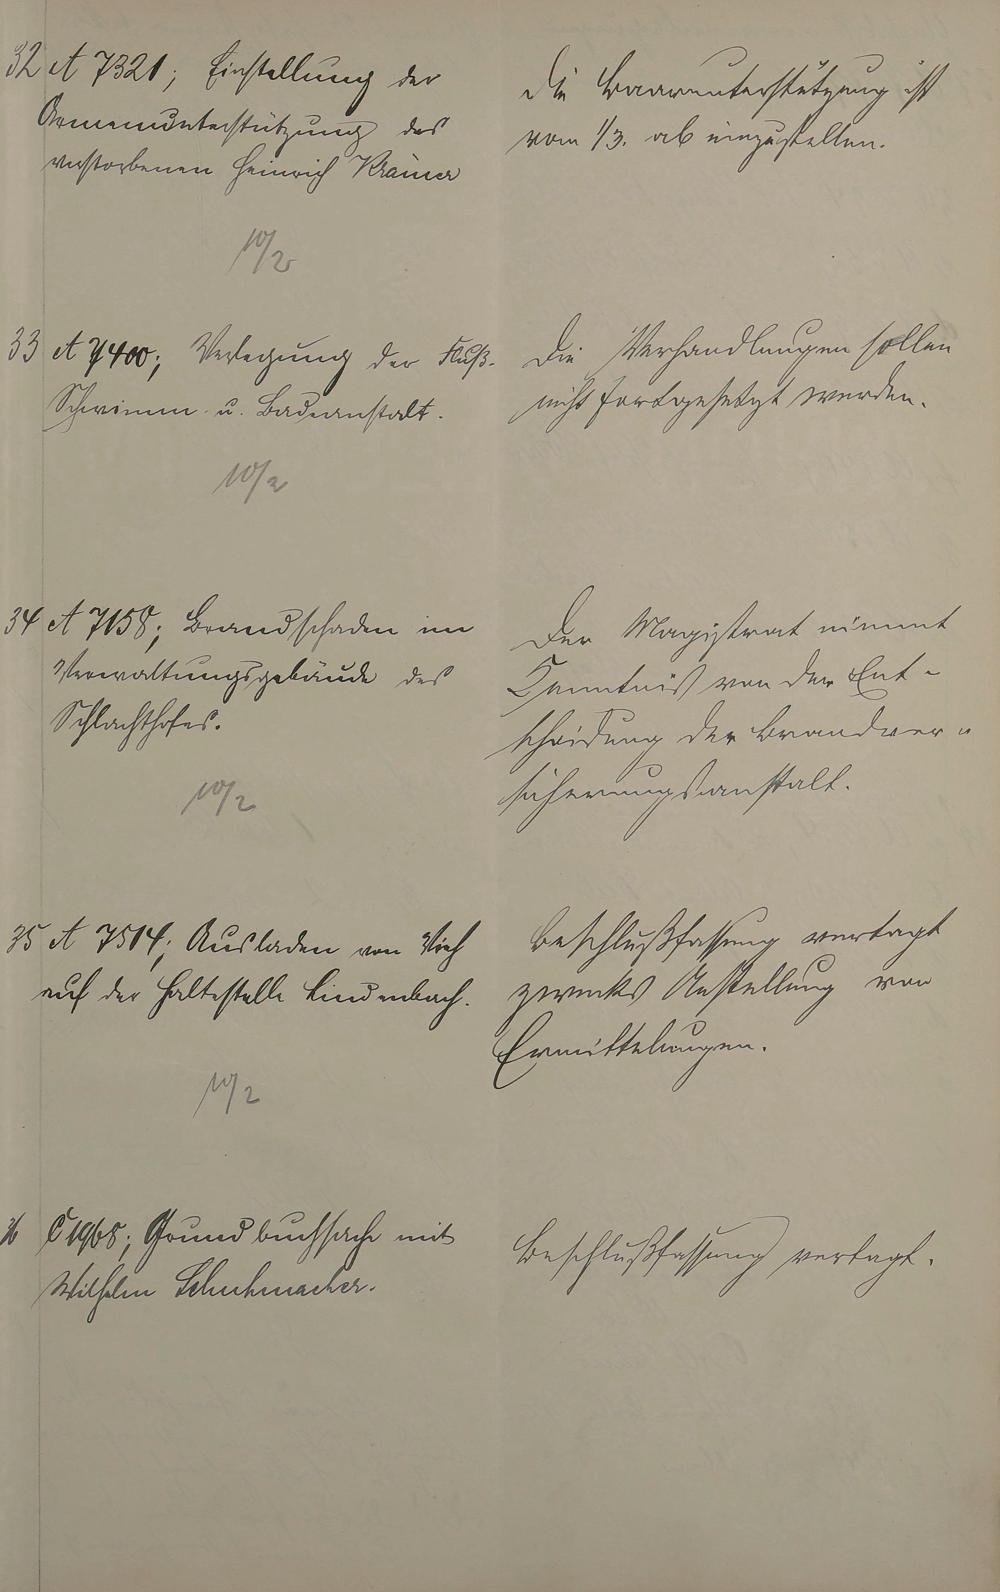 32 A 7321; Einstellung der
Armenunterstützung des
verstorbenen Heinrich Krämer
10/2
Die Baarunterstützung ist
vom 1/3. ab einzustellen.
33 A 7400; Verlegung der Fluß-
Schwimm u. Badeanstalt.
10/2
Die Verhandlungen sollen
nicht fortgesetzt werden.
34 A 7158; Brandschaden im
Verwaltungsgebäude des
Schlachthofes.
10/2
Der Magistrat nimmt
Kenntniß von der Ent-
scheidung der Brandver-
sicherungsanstalt.
35 A 7514; Ausladen von Vieh
auf der Haltestelle Lindenbach.
10/2
Beschlußfassung vertagt
zwecks Anstellung von
Ermittelungen.
36 C 1968; Grundbuchsache mit
Wilhelm Schuhmacher.
Beschlußfassung vertagt.